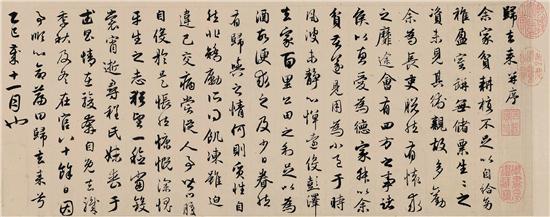 歸去來并序
余家貧耕植不足以自給幼
稚盈室缾無儲粟生生之
資未見其術親故多勸
余為長吏脫然有懷求
之靡途會有四方之事諸
侯以惠愛為德家叔以余
貧苦遂見用為小邑于時
風波未靜心憚遠役彭澤
去家百里公田之利足以為
酒故便求之及少日眷然
有歸歟之情何則質性自
然非矯勵所得飢凍雖迫
違己交病嘗從人事皆口腹
自役於是悵然慷慨深愧
平生之志猶望一稔當斂
裳宵逝尋程氏妹喪于
武昌情在駿奔自免去職
仲秋及冬在官八十餘日因
事順心命篇曰歸去來兮
乙巳歲十一月也